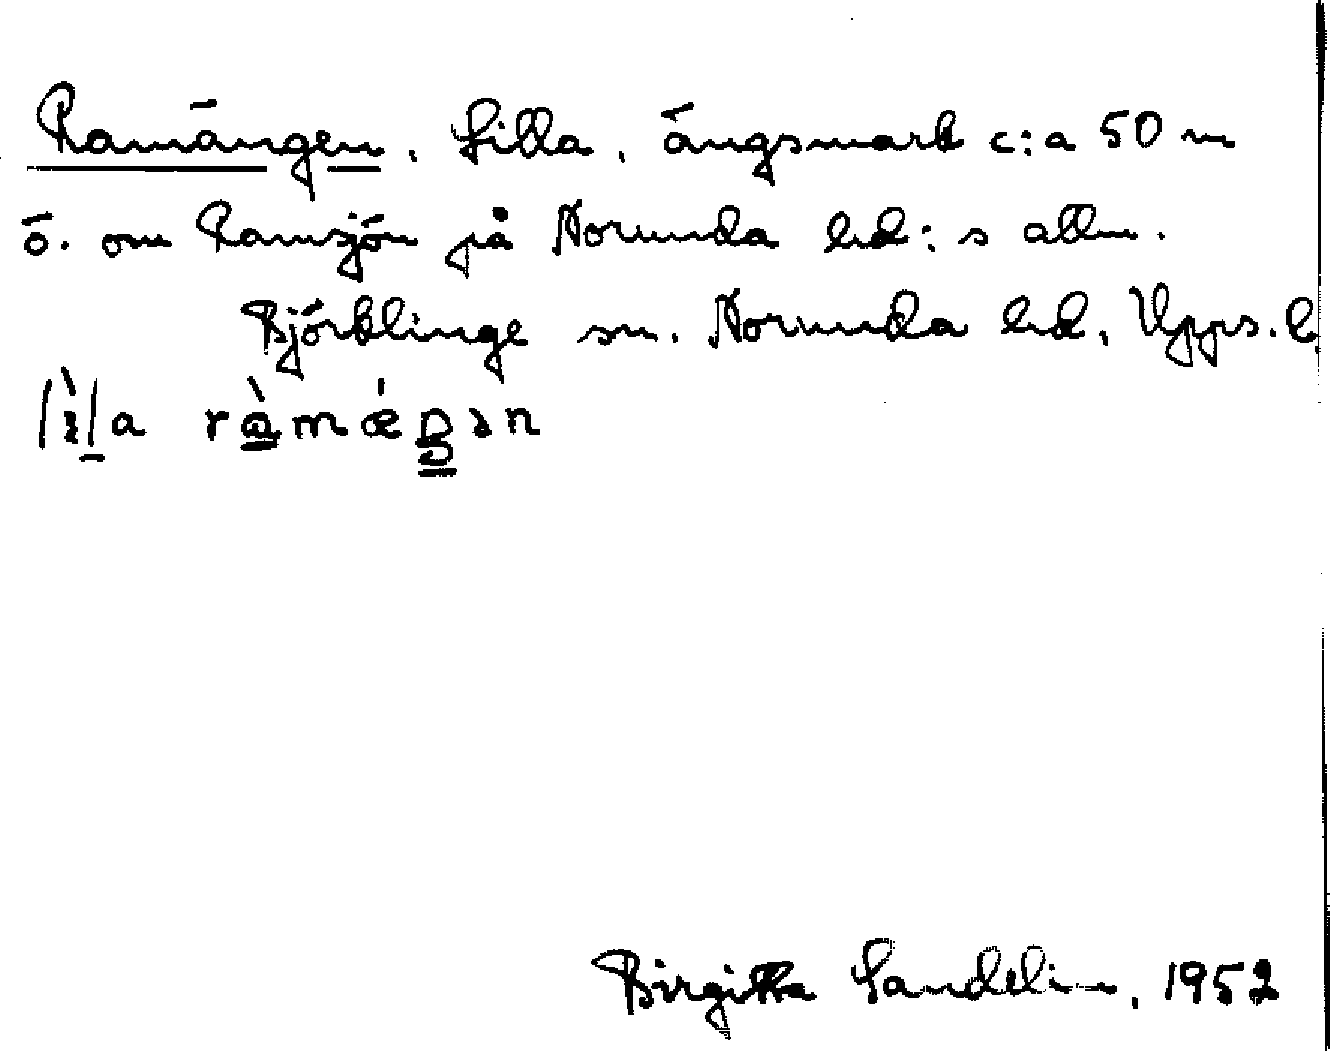 Ramängen, Lilla, ängsmark c:a 50 m
ö. om Ramsjön på Norunda hd:s allm.
Björklinge sn. Norunda hd, Upps. l.
lìla ràmǽŋən
Birgitta Sandelin, 1952